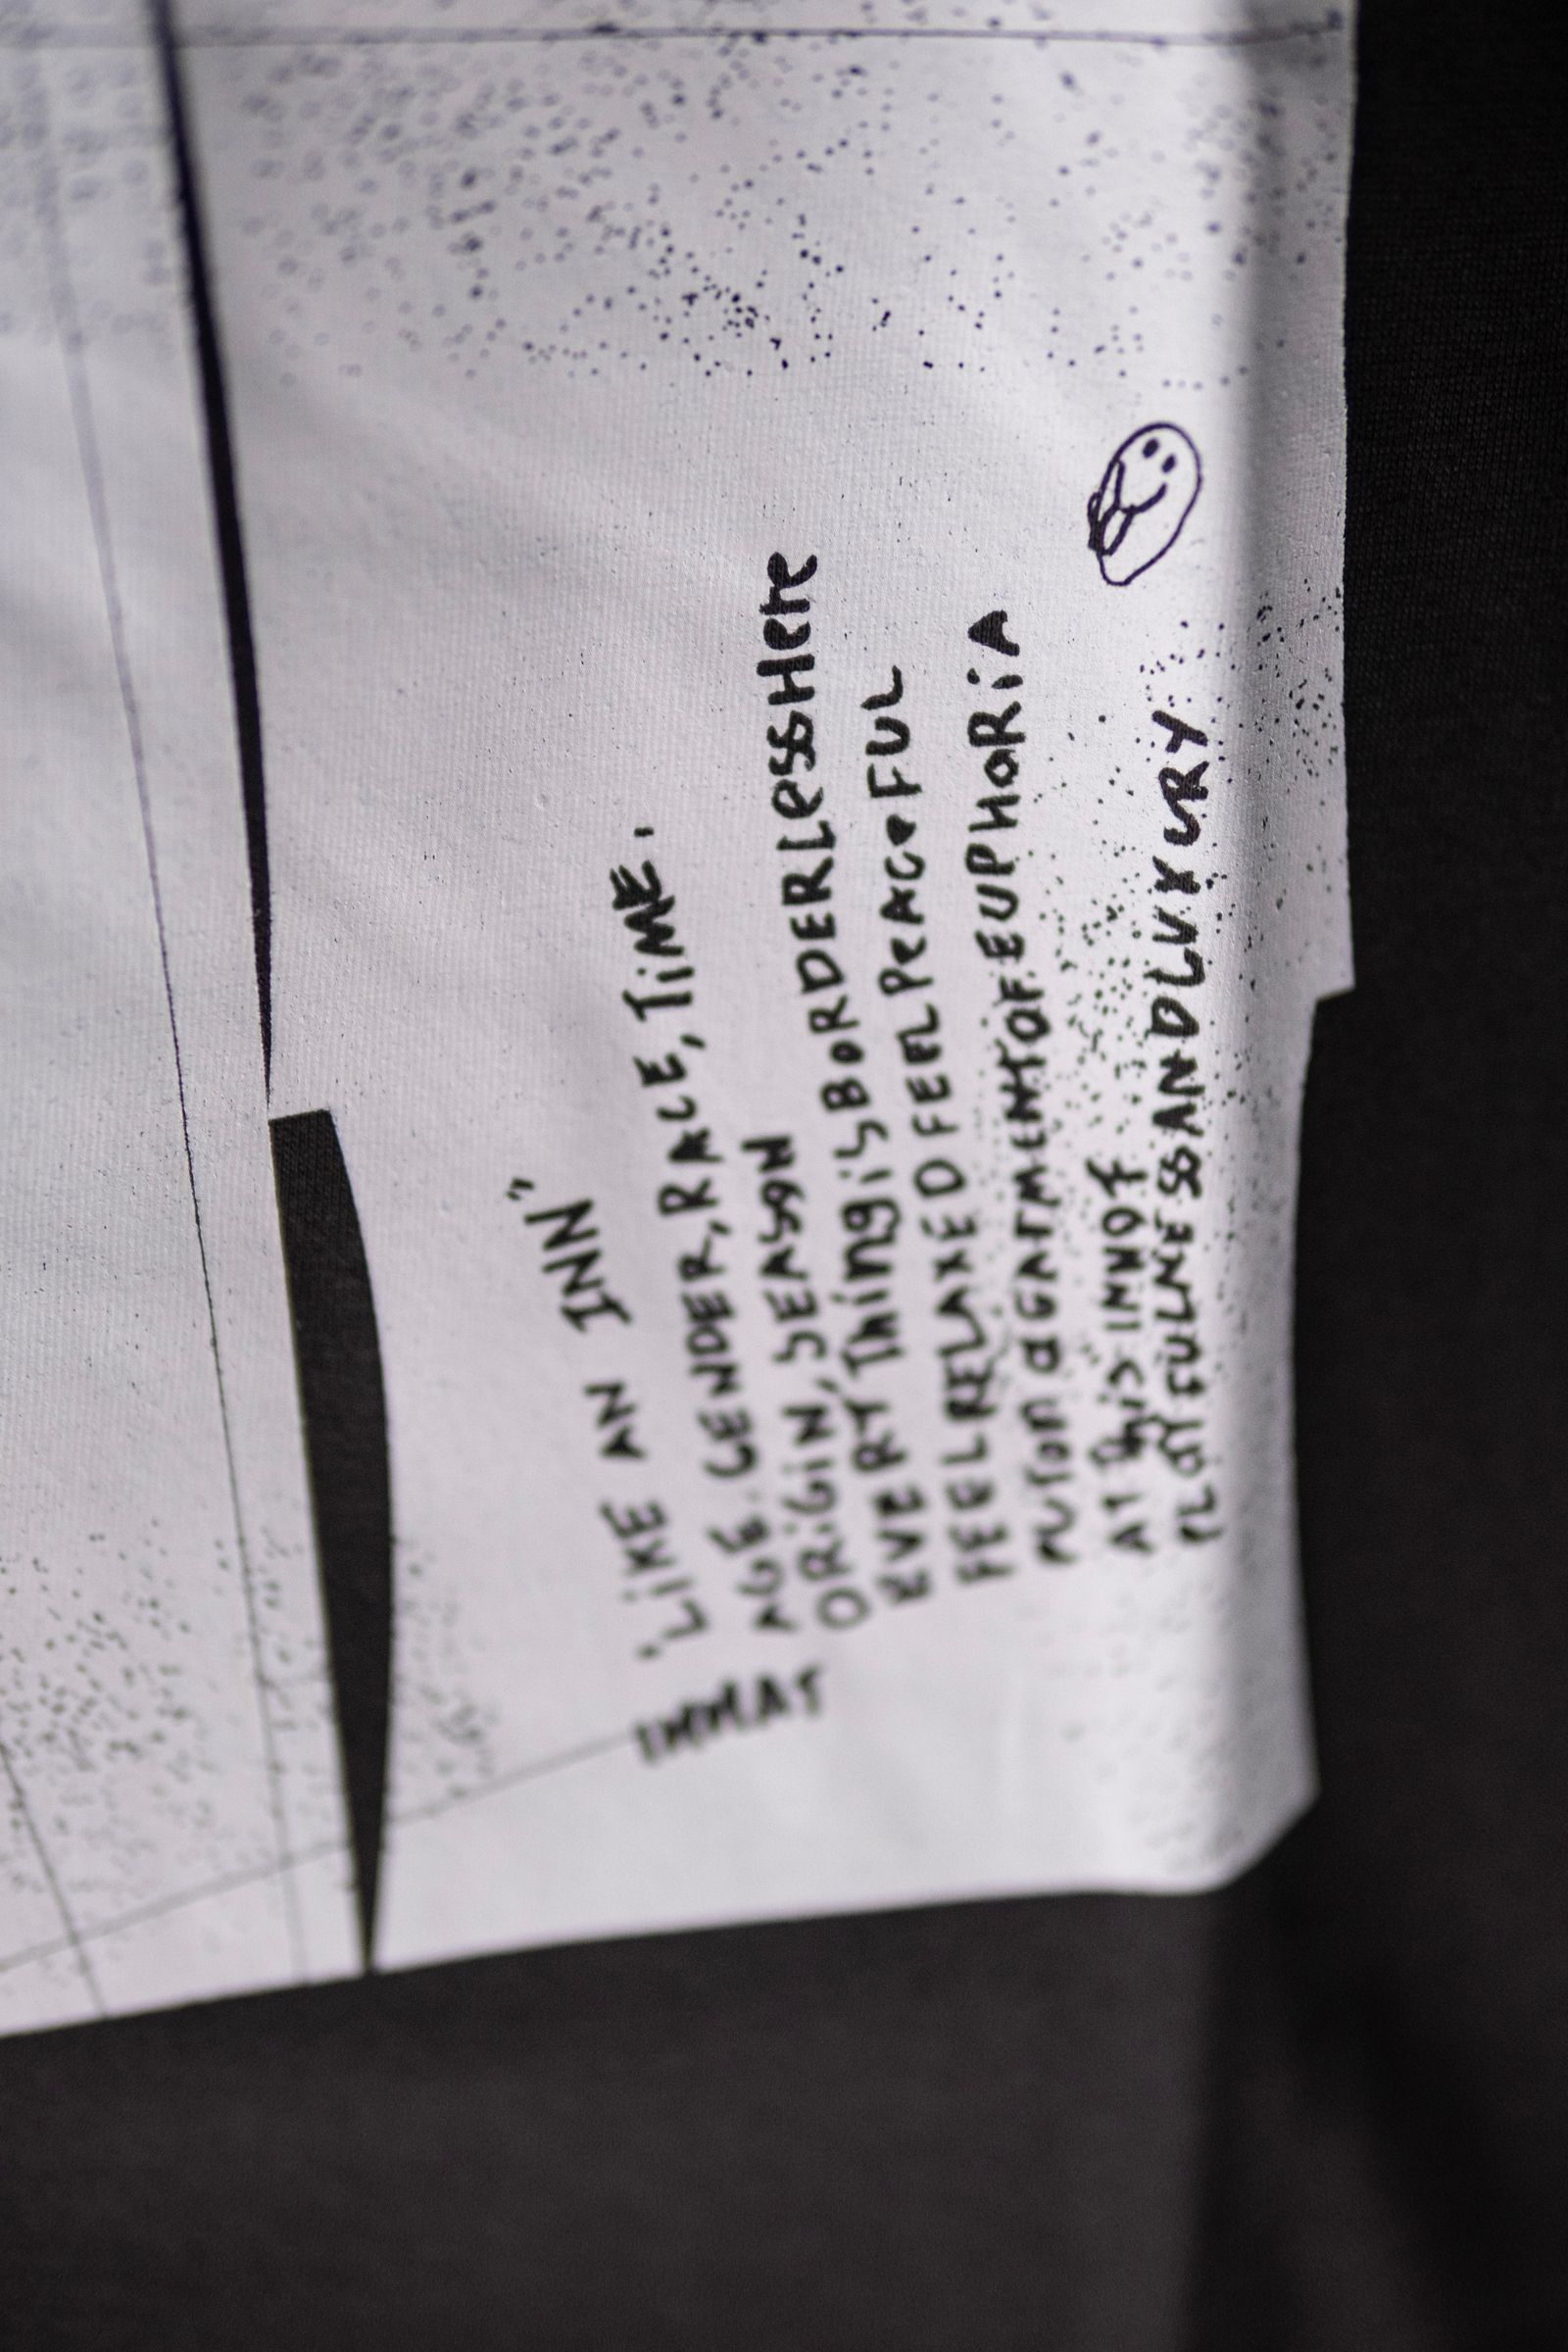 INMAT
"LiKE AN INN"
AGE. GENDER, RACE, TiME.
ORiGiN, SEASON
EVERYThingiSBORDERLessHere
FEELRELAXEDFEELPeACeFUL
PUTON aGARMENTOFEUPHoRiA
AT this INNOF
PLaYFULNESSANDLUXURY